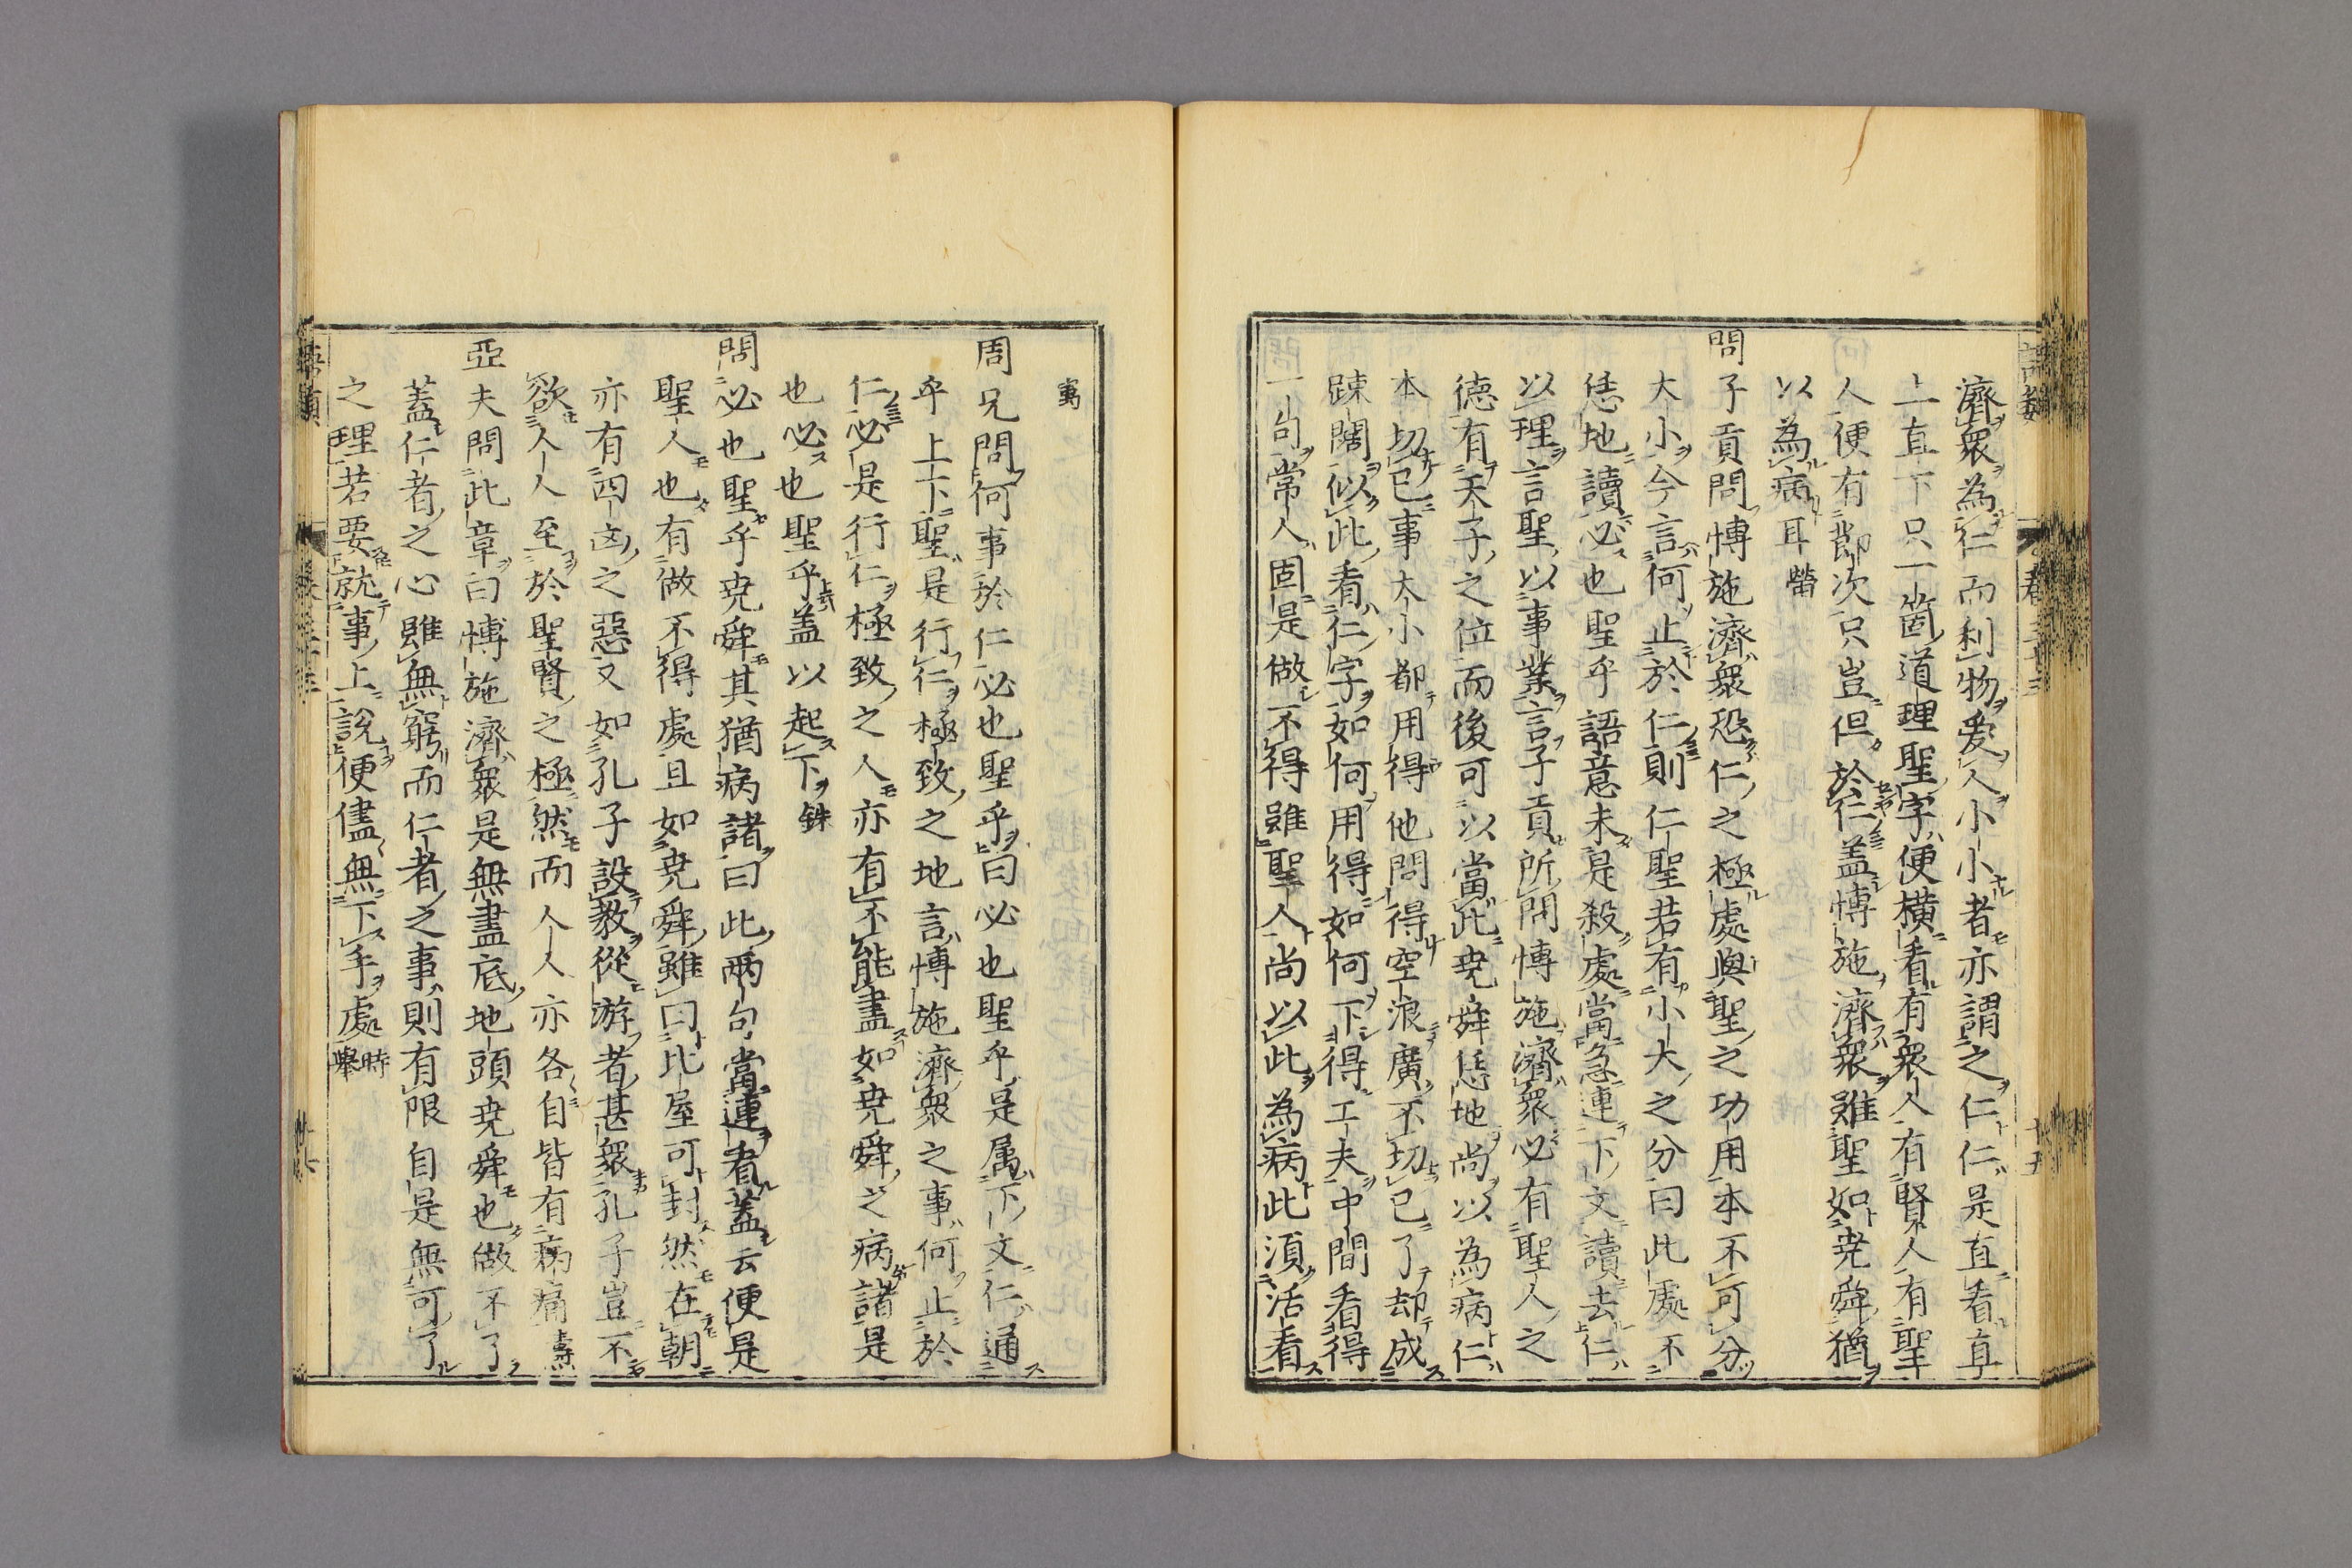 濟衆為仁而利物愛人小小者亦謂之仁仁是直看直
上直下只一箇道理聖字便横看有衆人有賢人有聖
人便有節次只豈但於仁蓋博施濟衆雖聖如堯舜猶
以為病耳㽦
問子貢問博施濟衆恐仁之極處與聖之功用本不可分
大小今言何止於仁則仁聖若有小大之分曰此處不
恁地讀必也聖乎語意未是殺處當急連下文讀去仁
以理言聖以事業言子貢所問博施濟衆必有聖人之
德有天子之位而後可以當此堯舜恁地尚以為病仁
本切已事大小都用得他問得空浪廣不切已了却成
踈闊似此看仁字如何用得如何下得工夫中間看得
一句常人固是做不得雖聖人尚以此為病此須活看
㝢
周兄問何事於仁必也聖乎曰必也聖乎是属下文仁通
乎上下聖是行仁極致之地言博施濟衆之事何止於
仁必是行仁極致之人亦有不能盡如堯舜之病諸是
也必也聖乎蓋以起下銖
問必也聖乎堯舜其猶病諸曰此兩句當連看蓋云便是
聖人也有做不得處且如堯舜雖曰比屋可封然在朝
亦有四凶之惡又如孔子設教從游者甚衆孔子豈不
欲人人至於聖賢之極然而人人亦各自皆有病痛燾
亞夫問此章曰博施濟衆是無盡底地頭堯舜也做不了
蓋仁者之心雖無窮而仁者之事則有限自是無可了
之理若要就事上說便儘無下手處時舉